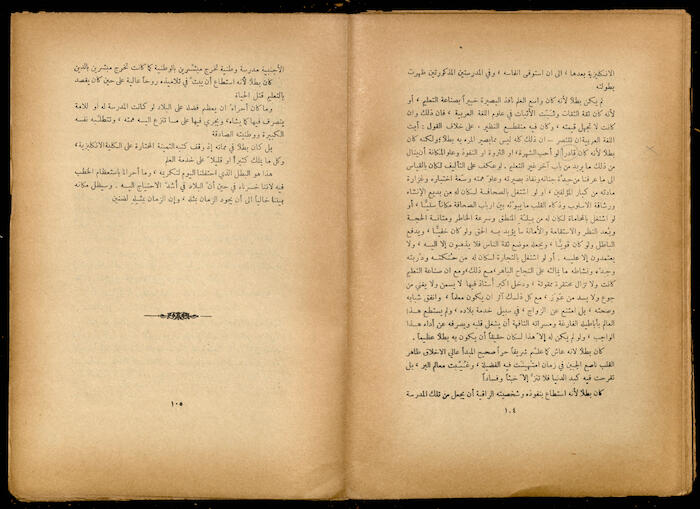 الانكليزية بعدها ، الى ان استوفى انفاسه ، وفي المدرستين المذكورتين ظهرت
بطولته
لم يكن بطلاً لأنه كان واسع العلم نافذ البصيرة خبيراً بصناعة التعليم ، أو
لأنه كان ثقة الثقات وثبت الأثبات في علوم اللغة العربية ، فان ذلك وان
كانت لا تجهل قيمته ، وكان فيه منقطع النظير ، على خلاف القول : أبت
اللغة العربية ان تتنصر – ان ذلك كله ليس مما يصير المرء به بطلاً ولكنه كان
بطلاً لأنه كان قادراً لو أحب الشهرة او الثروة او النفوذ وعلو المكانة أن ينال
من ذلك ما يريد من باب آخر غير التعليم . لو عكف على التأليف لكان بالقياس
الى ما عرفنا من حدة جنانه ونفاذ بصيرته وعلو همته وسعة اختباره وغزارة
مادته من كبار المؤلفين ، او لو اشتغل بالصحافة لكان له من بديع الإنشاء
ورشاقة الاسلوب وذكاء القلب ما يبوئه بين ارباب الصحافة مكاناً سنياً ، أو
لو اشتغل بالمحاماة لكان له من بلاغة المنطق وسرعة الخاطر ومتانة الحجة
وبعد النظر والاستقامة والأمانة ما يؤيد به الحق ولو كان خفياً ، ويدفع
الباطل ولو كان قوياً ، ويجعله موضع ثقة الناس فلا يذهبون إلا اليه ، ولا
يعتمدون إلا عليه . أو لو اشتغل بالتجارة لكان له من حنكته ودربته
وجده ونشاطه ما يناله على النجاح الباهر مع ذلك ، ومع ان صناعة التعليم
كانت ولا تزال محتقرة ممقوتة ، ودخل اكبر أستاذ فيها لا يسمن ولا يغني من
جوع ولا يسد من عوز ، مع كل ذلك آثر ان يكون معلماً ، وانفق شبابه
وصحته ، بل امتنع عن الزواج ، في سبيل خدمة بلاده ، ولم يستطع هذا
العالم بأباطيله الفارغة ومسراته التافهة أن يشغل قلبه ويصرفه عن أداء هذا
الواجب ، ولو لم يكن له إلا هذا لكان حقيقاً أن يكون به بطلاً عظيماً .
كان بطلاً لانه عاش كما علم شريفاً حراً صحيح المبدأ عالي الاخلاق طاهر
القلب ناصع الجبين في زمان امتهنت فيه الفضيلة ، وغيبت معالم البر ، بل
تفرحت فيه كبد الدنيا فلا تنز إلا خبثاً وفساداً
كان بطلاً لأنه استطاع بنفوذه وشخصيته الراقية أن يجعل من تلك المدرسة
١٠٤
الأجنبية مدرسة وطنية تخرج مبشرين بالوطنية كما كانت تخرج مبشرين بالدين
كان بطلاً لأنه استطاع أن يبث في تلاميذه روحاً عالية على حين كان يقصد
بالتعليم قتل الحياة
وما كان أحراه ان يعظم فضله على البلاد لو كانت المدرسة له او للامة
يتصرف فيها كما يشاء ، ويجري فيها على ما تنزع اليه همته ، وتتطلبه نفسه
الكبيرة ووطنيته الصادقة
بل كان بطلاً في مماته إذ وقف كتبه الثمينة المختارة على الكلية الانكليزية ،
وكل ما يملك كثيراً او قليلاً على خدمة العلم
هذا هو البطل الذي احتفلنا اليوم لتكريمه ، وما أحرانا باستعظام الخطب
فيه لاننا خسرناه في حين أن البلاد في أشد الاحتياج اليه . وسيظل مكانه
بيننا خالياً الى أن يجود الزمان بمثله ، وإن الزمان بمثله لضنين
١٠٥